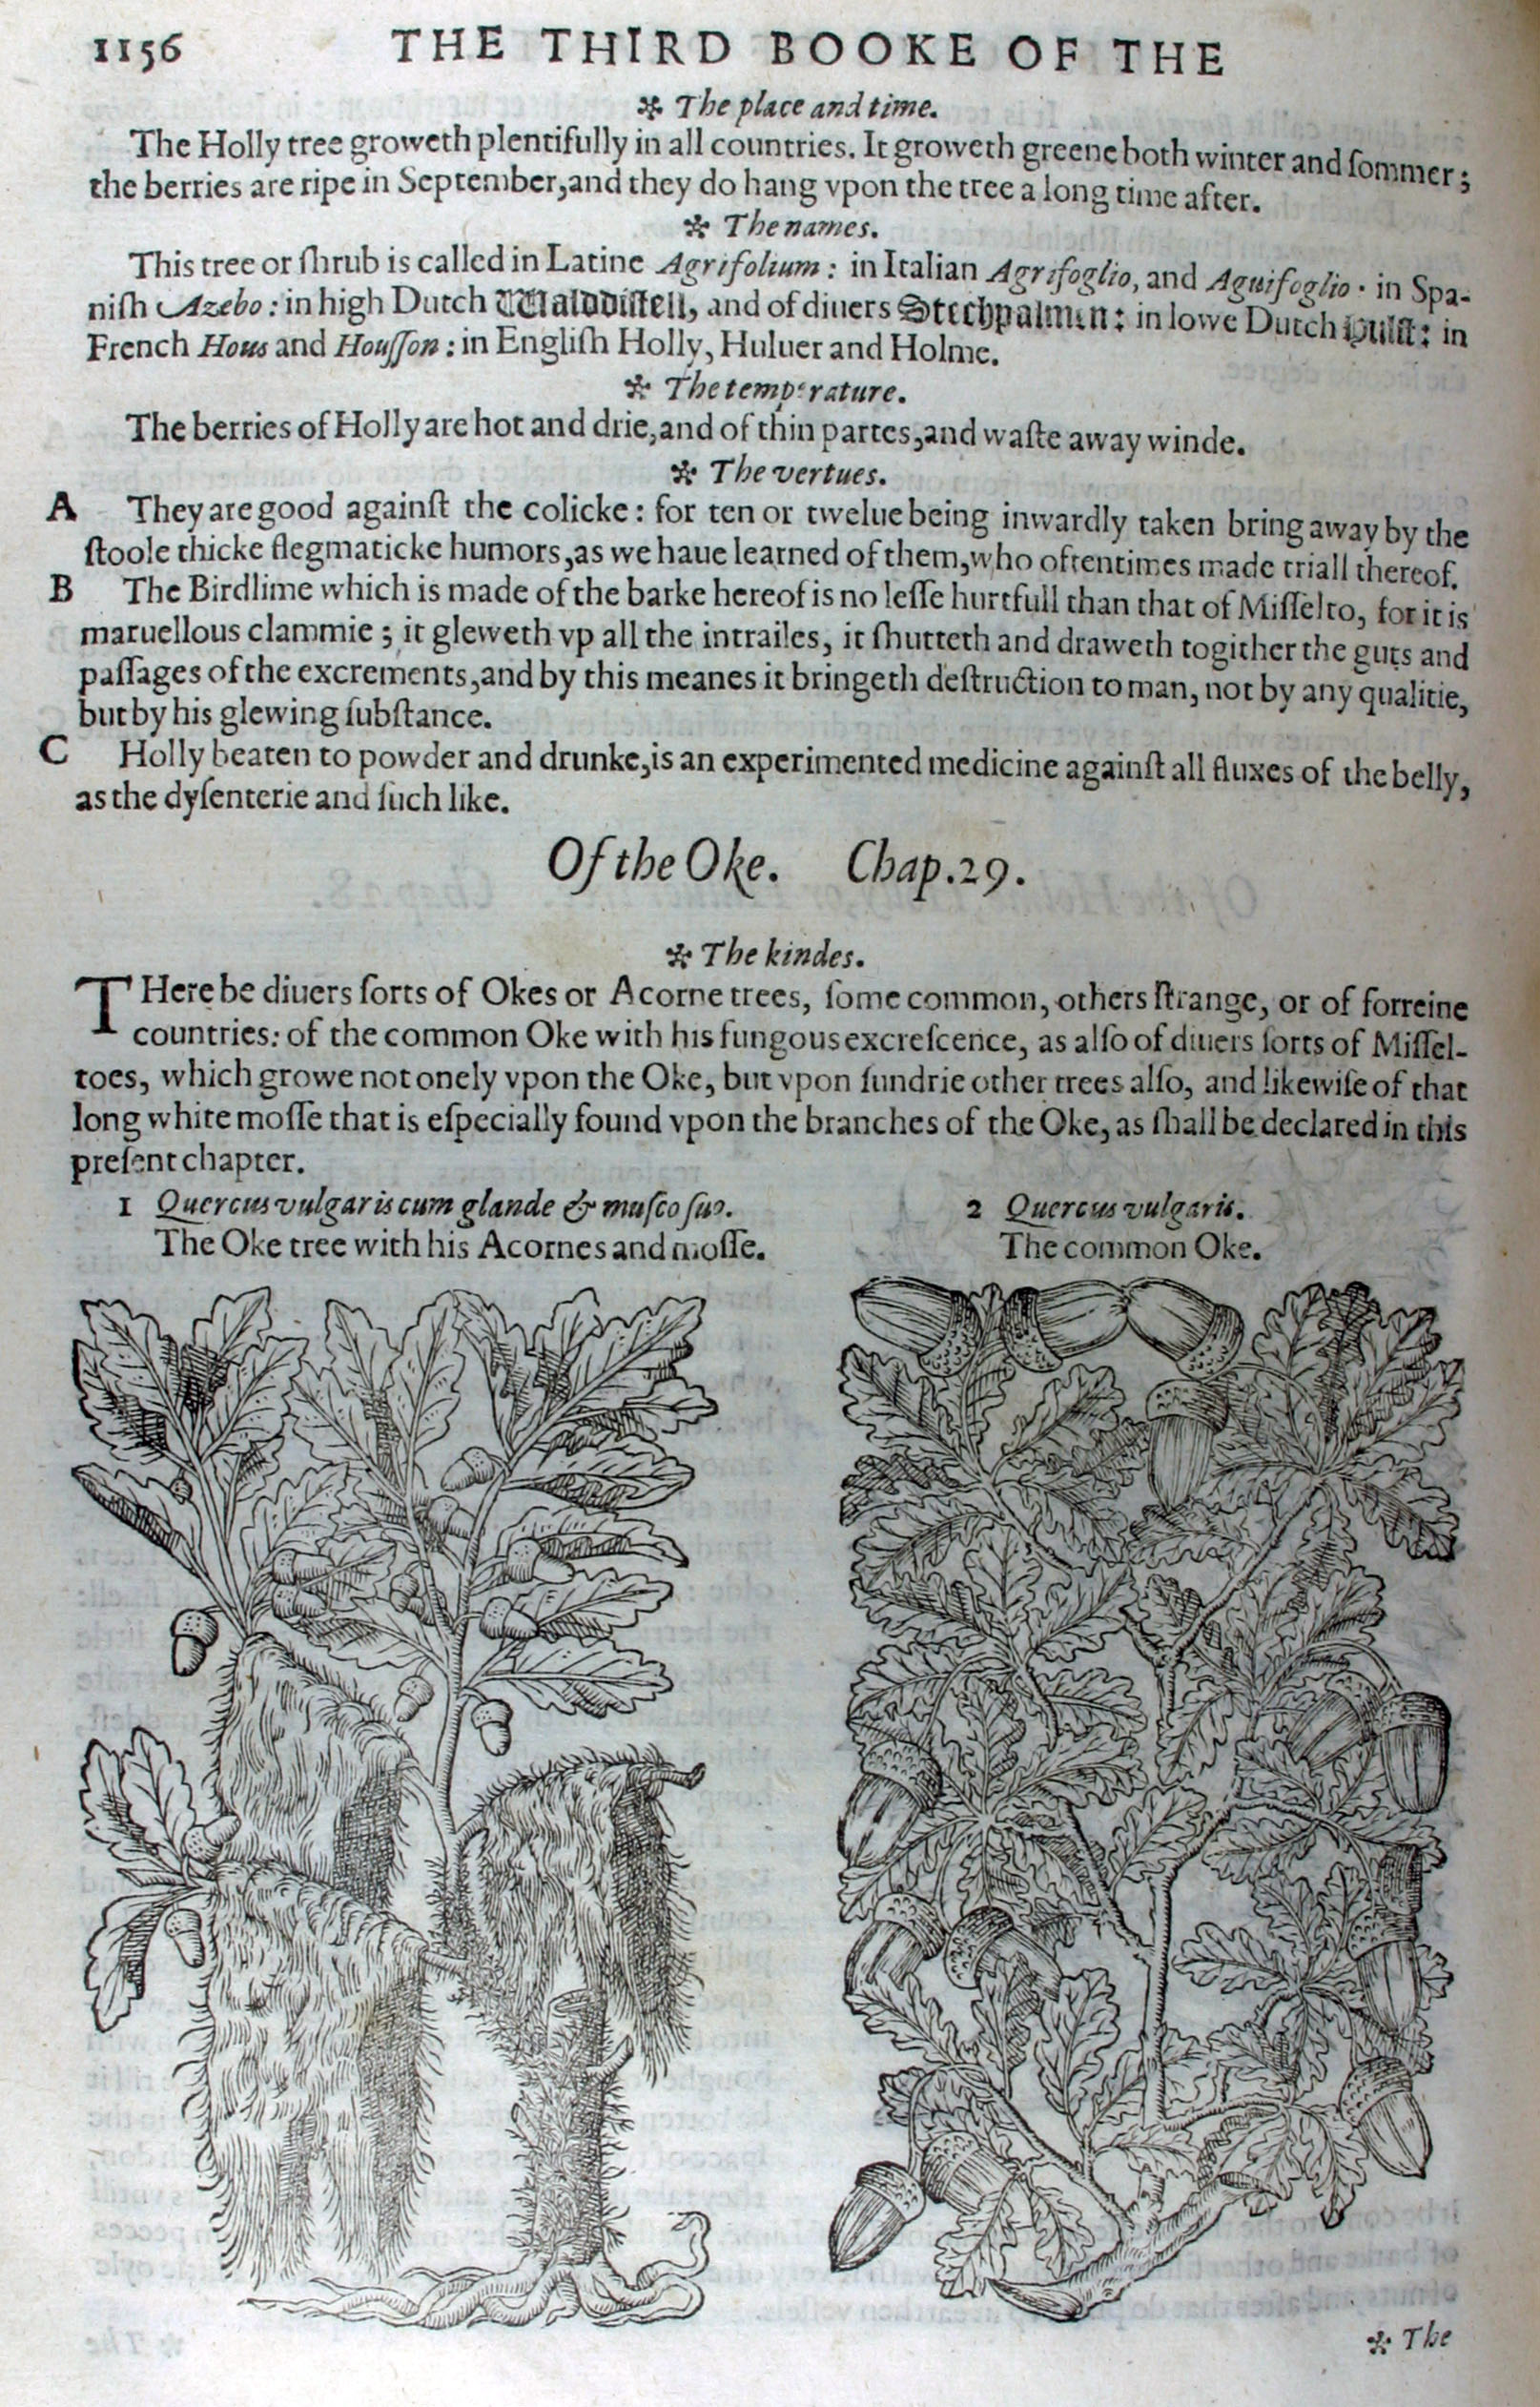 1156 THE THIRD BOOKE OF THE
✲ The place and time.
The Holly tree groweth plentifully in all countries. It groweth greene both winter and ſommer;
the berries are ripe in September, and they do hang vpon the tree a long time after.
✲ The names.
This tree or ſhrub is called in Latine Agrifolium: in Italian Agrifoglio, and Aguifoglio · in Spa-
niſh Azebo: in high Dutch Walddiſtell, and of diuers Stechpalmen: in lowe Dutch Hulſt: in
French Hous and Houſſon: in Engliſh Holly, Huluer and Holme.
✲ The temperature.
The berries of Holly are hot and drie, and of thin partes, and waſte away winde.
✲ The vertues.
A They are good againſt the colicke: for ten or twelue being inwardly taken bring away by the
ſtoole thicke flegmaticke humors, as we haue learned of them, who oftentimes made triall thereof.
B The Birdlime which is made of the barke hereof is no leſſe hurtfull than that of Miſſelto, for it is
maruellous clammie; it gleweth vp all the intrailes, it ſhutteth and draweth togither the guts and
paſſages of the excrements, and by this meanes it bringeth deſtruction to man, not by any qualitie,
but by his glewing ſubſtance.
C Holly beaten to powder and drunke, is an experimented medicine againſt all fluxes of the belly,
as the dyſenterie and ſuch like.
Of the Oke. Chap. 29.
✲ The kindes.
THere be diuers ſorts of Okes or Acorne trees, ſome common, others ſtrange, or of forreine
countries: of the common Oke with his fungous excreſcence, as alſo of diuers ſorts of Miſſel-
toes, which growe not onely vpon the Oke, but vpon ſundrie other trees alſo, and likewiſe of that
long white moſſe that is eſpecially found vpon the branches of the Oke, as ſhall be declared in this
preſent chapter.
1 Quercus vulgaris cum glande & muſco ſuo.
The Oke tree with his Acornes and moſſe.
2 Quercus vulgaris.
The common Oke.
✲ The